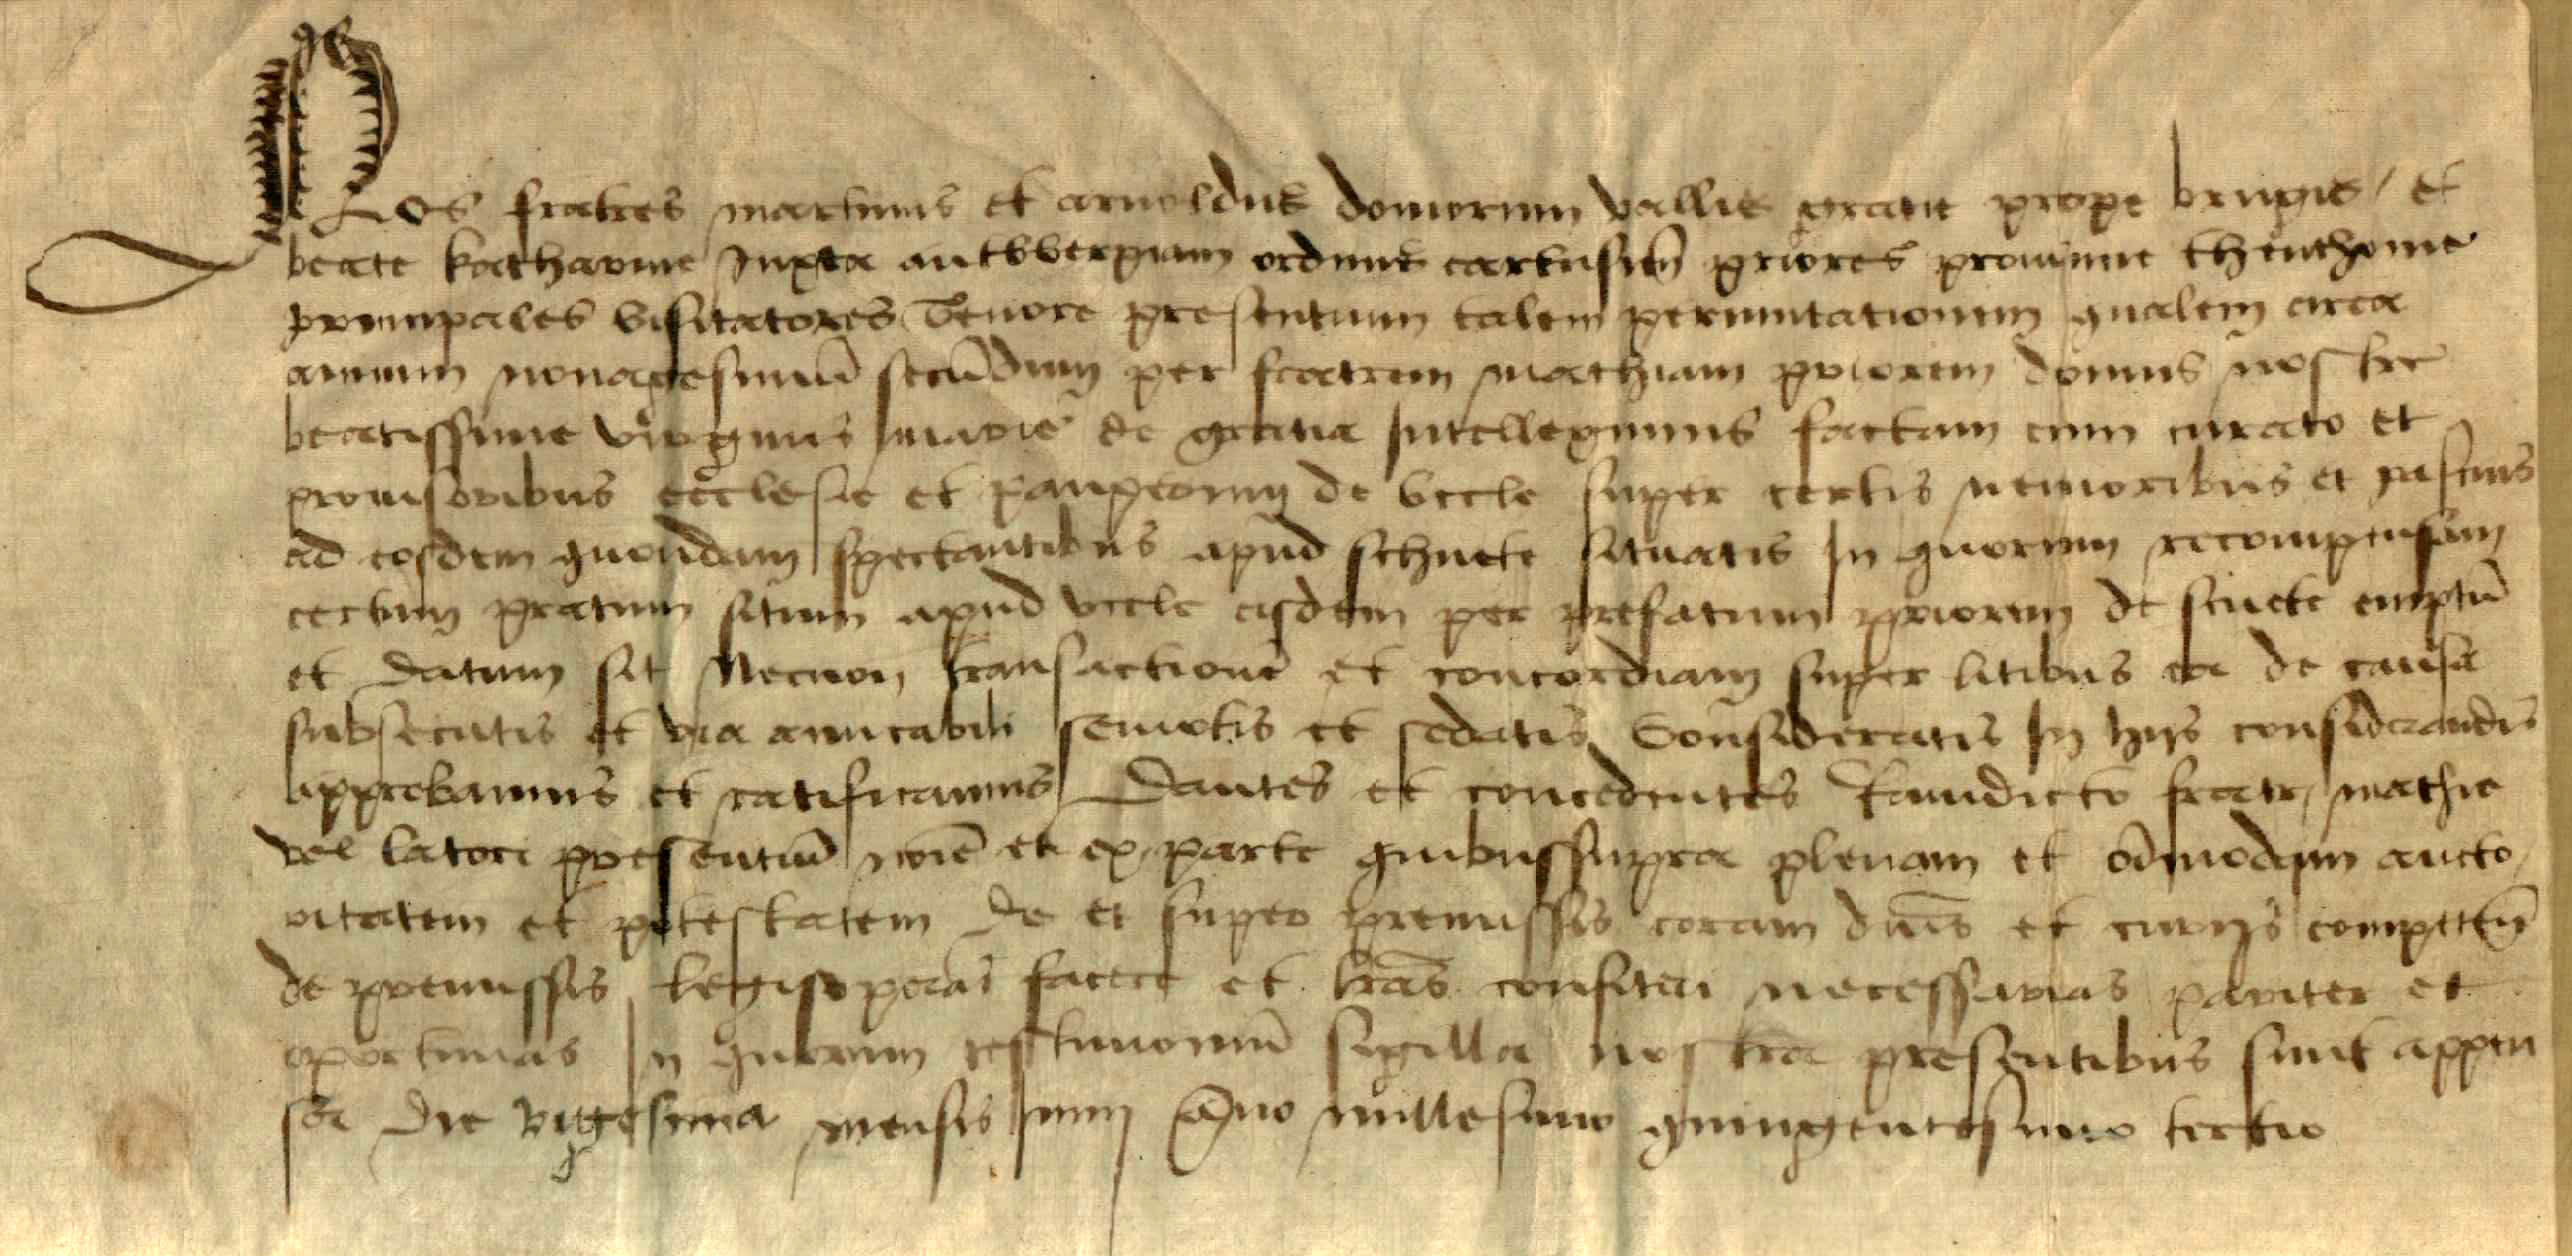 Nos fratres martinus et arnoldus domorum vallis gratie prope brugis / et
beate katharine Juxta antwerpiam ordinis cartusien̄ priores prouincie theuthonie
principales visitatores Tenore presentium talem permutationem qualem circa
annum nonagesimū secūdum per fratrem mathiam priorem domus nostre
beatissime virginis marie de gratia Intelleximus factam cum curato et
prouisoribus ecclesie et pauperum de vccle super certis nemoribus et pascuis
ad eosdem quondam spectantibus apud schuete situatis In quorum recompensam
certum pratum situm apud vccle eisdem per prefatum priorem de scuete emptū
et datum sit Necnon transactionē et concordiam super litibus ea de causa
subsecutis et via amicabili semotis et sedatis Consideratis In hijs considerandis
approbamus et ratificamus Dantes et concedentes eamdicto fratr mathie
vel latori presentiū noīe et ex parte quibussupra plenam et oīmodam aucto
ritatem et potestatem de et super premissis coram dn̄is et curijs competen̄
de premissis facere et lr̄as confiteri necessarias pariter et
oportunas In quorum testimoniū sigilla nostra presentibus sunt appen
sa die vigesima mensis Junij Āno millesimo quingentesimo tertio